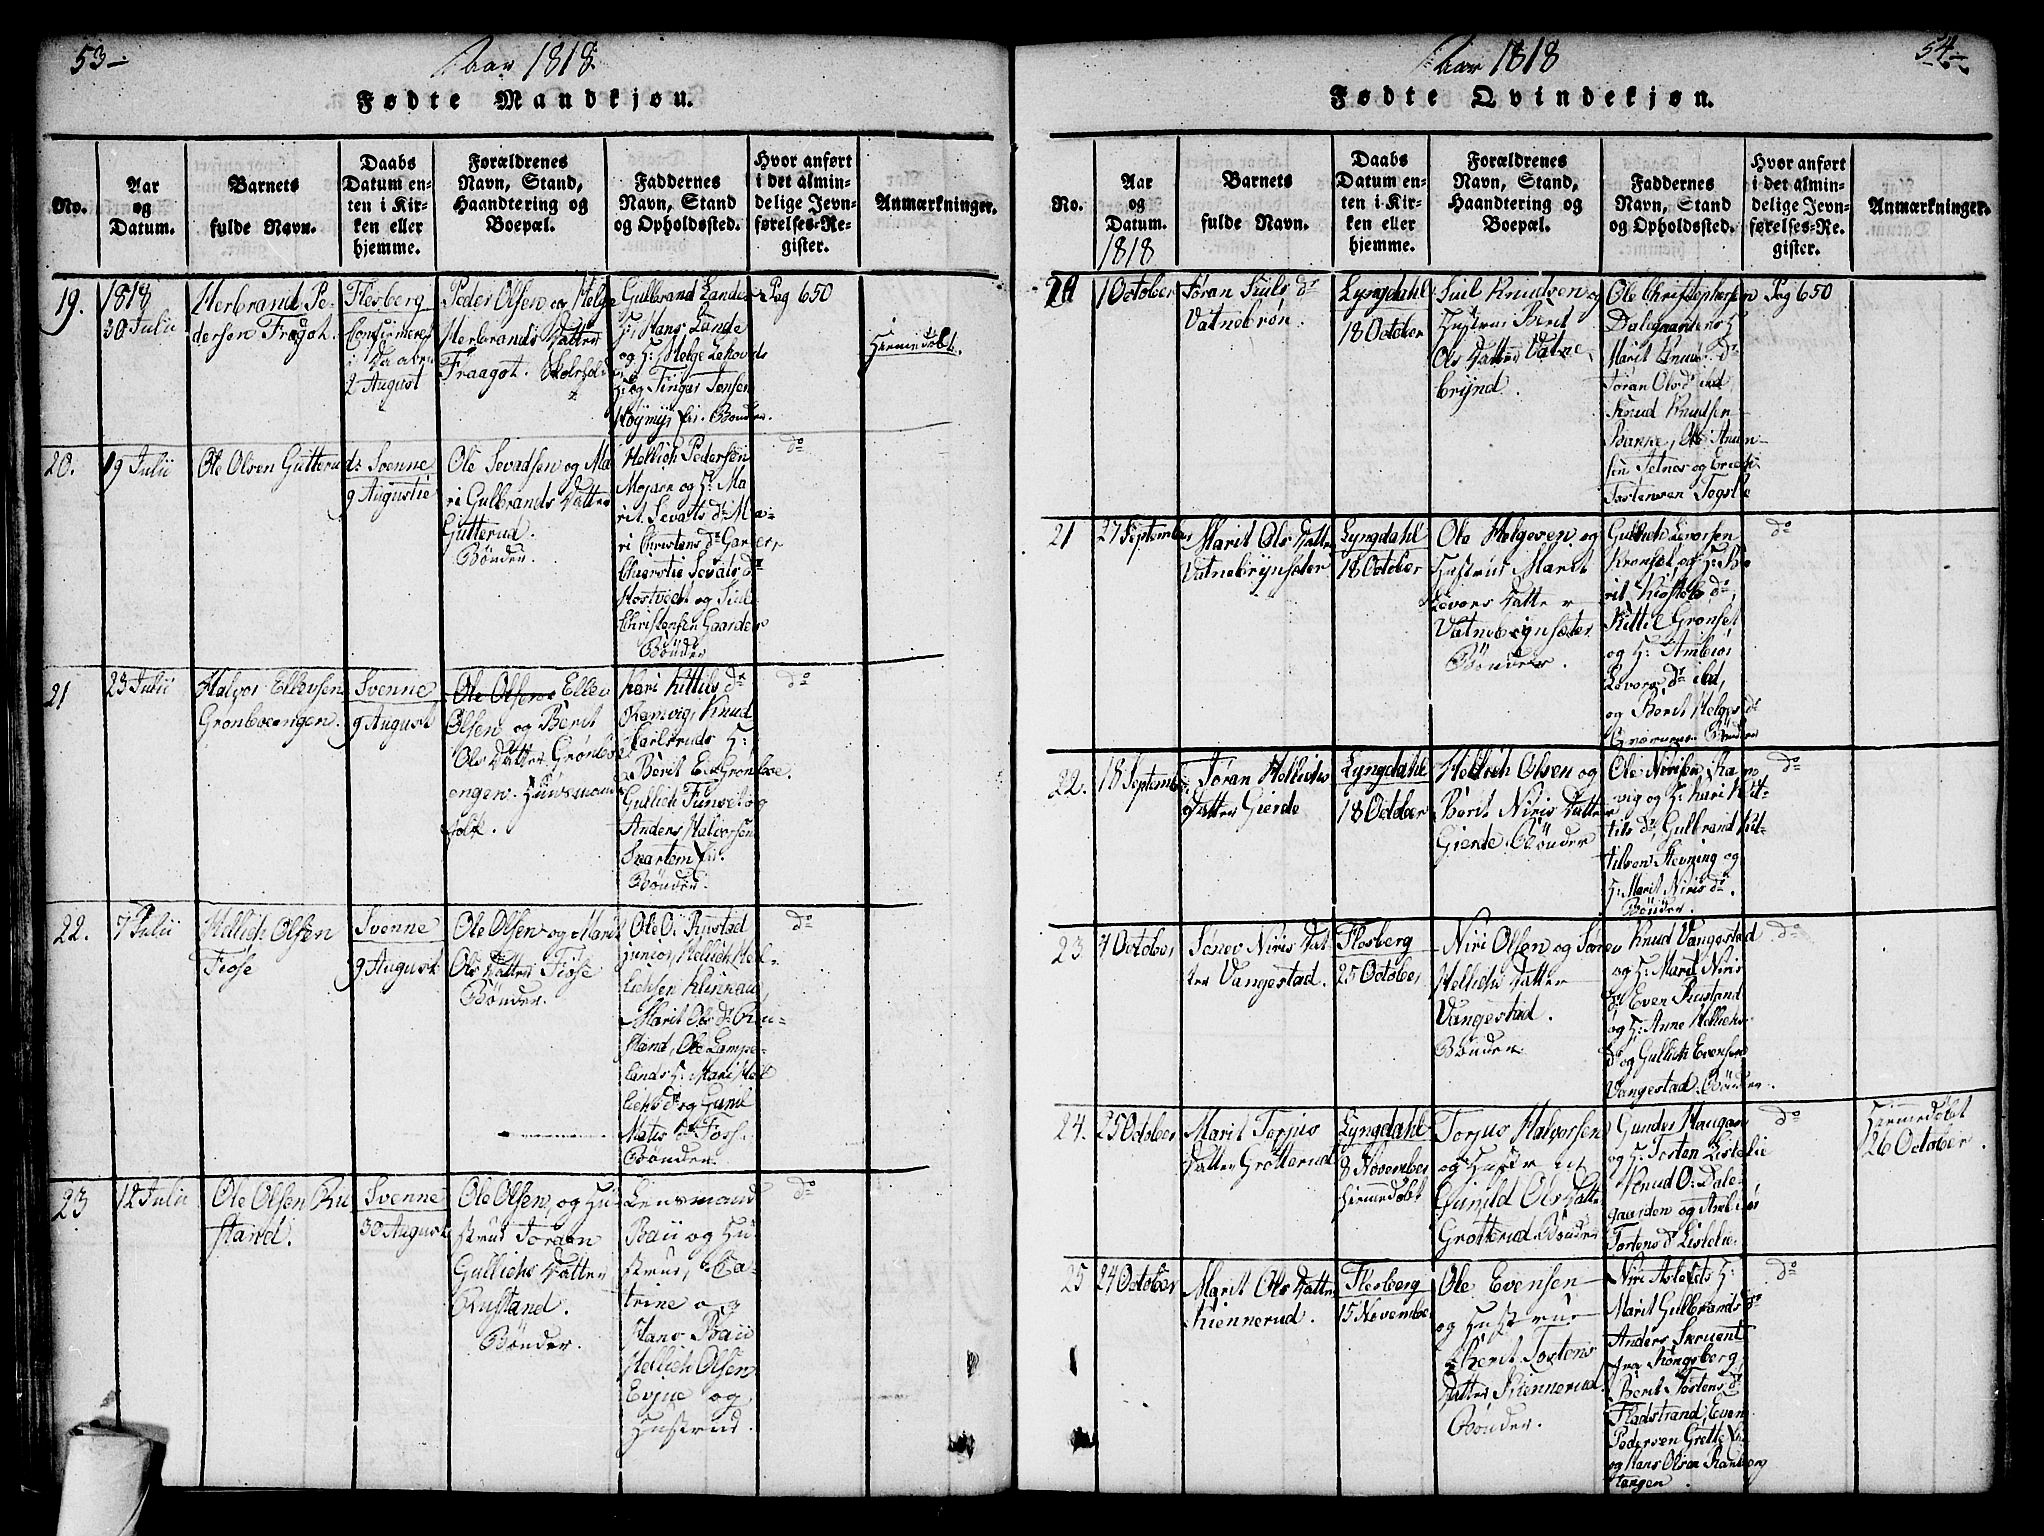 53
Aar 1818
Fødte Mandkjøn.
No.
Aar
og
Datum.
Barnets
fulde Navn.
Daabs
Datum en-
ten i Kir-
ken eller
hjemme.
Forældrenes
Navn, Stand,
Haandtering og
Boepæl.
Faddernes
Navn, Stand
og Opholdssted.
Hvor anført
i det almin-
delige Jevn-
førelses-Re-
gister.
Anmærkninger.
19.
1818
30 Julii
Herbrand Pe-
dersen Fragot.
Flesberg
2 August
Peder Olsen og Helge
Herbrands Datter
Fraagot.
Gulbrand
Hans Lunde
Pag 650
Hiemedøbt.
20.
19 Julii
Ole Olsen Gutterud
Svenne
9 Augustii
Ole Sevadsen og Ma
ri Gulbrands Datter
Gutterud.
Bønder.
Hellich Pedersen
Mojaen og H: Ma
rit Sevatts dr Ma-
ri Christens dr
Christensen Gaarder
Bønder
do
21
23 Julii
Halvor Ellevsen
Grønboeengen.
Svenne
9 August
Ole Olsen Ellev
Olsen og Berit
Ols Datter Grønboe
engen. Huusmands
folk.
Kari Kittils dr
Ramvig, Knud
Karlsruds H:
Gullich Funset og
Anders Halvorsen
Bønder.
do
22.
7 Julii
Hellich Olsen
Fiøse
Svenne
9 August
Ole Olsen og Marit
Ols Datter Fiøse
Bønder.
Ole O: Rustad
junior, Hellich Hel-
lichsen
Marit Ols dr Ru-
stand, Ole Lampe-
lands H: Mari Hel
lichs dr og Gunil
Mates dr Foss.
Bønder
do
23
12 Julii
Ole Olsen Ru
stand.
Svenne
30 August
Ole Olsen og Hu
strue Joraen
Gullichs Datter
Rustand.
Bønder.
Lensmand
Baii og Hu
strue, Ca-
trine og
Hans Baii
Hellich Olsen
Evjue og
Hustrue.
do
54
Aar 1818
Fødte Qvindekjøn.
No.
Aar
og
Datum.
1818
Barnets
fulde Navn.
Daabs
Datum en-
ten i Kir-
ken eller
hjemme.
Forældrenes
Navn, Stand,
Haandtering og
Boepæl.
Faddernes
Navn, Stand
og Opholdssted.
Hvor anført
i det almin-
delige Jevn-
førelses-Re-
gister.
Anmærkninger.
20
1 October
Jøran Siuls dr
Vatnebrøn.
Lyngdahl
18 October
Siul Knudsen og
Hustrue Berit
Ols Datter Vatne
brynd.
Ole Christophersen
Dalegaardens H
Marit Knuds dr
Jøran Ols dr ibd,
Knud Knudsen
Pag 650
21
27 September
Marit Ols Datter
Vatnebrynseter
Lyngdahl
18 October
Ole Helgesen og
Hustrue Marit
Levors Datter
Vatnebrynsæter
Bønder.
Gullich Levorsen
Kittil Grønset
og H: Ambiør
Levors dr ibd,
og Berit Helges dr
do
22.
18 September
Jøran Hellichs
Datter Gierde
Lyngdahl
18 October
Hellich Olsen og
Berit Niris Datter
Gierde. Bønder
Ole Nirisen, Ram
vig og H: Kari Kit-
tils dr, Gulbrand Kit-
tilsen Hevning og
H: Marit Niris dr.
Bønder.
do
23
7 October
Sønev Niris Dat-
ter Vangestad.
Flesberg
25 October
Niri Olsen og Sønev
Hellichs Datter
Vangestad.
Bønder
Knud Vangestad
og H: Marit Niris
dr, Even Rustand
og H: Anne Hellichs
dr og Gullich Evensen
Vangestad. Bønder.
do
24.
25 October
Marit Torjus
Datter Grøtterud
Lyngdahl
8 November
hiemedøbt
Torjus Halvorsen
og Hustrue
Gunild Ols Datter
Grøtterud. Bønder
Gunder Haugan
og H: Torsten Listelie
Knud O: Dale-
gaarden og
Torstens dr Listelie.
do
Hiemedøbt
26 October.
25
24 October
Marit Ols Datter
Kiennerud.
Flesberg
15 November
Ole Evensen
og Hustrue
Berit Torstens
Datter Kiennerud.
Bønder.
Niri Aslefets H:
Marit Gulbrands dr
Anders Skruent
fra Kongsberg,
Berit Torstens dr
Fladstrand, Even
Pedersen Grette
og Hans Olsen
do